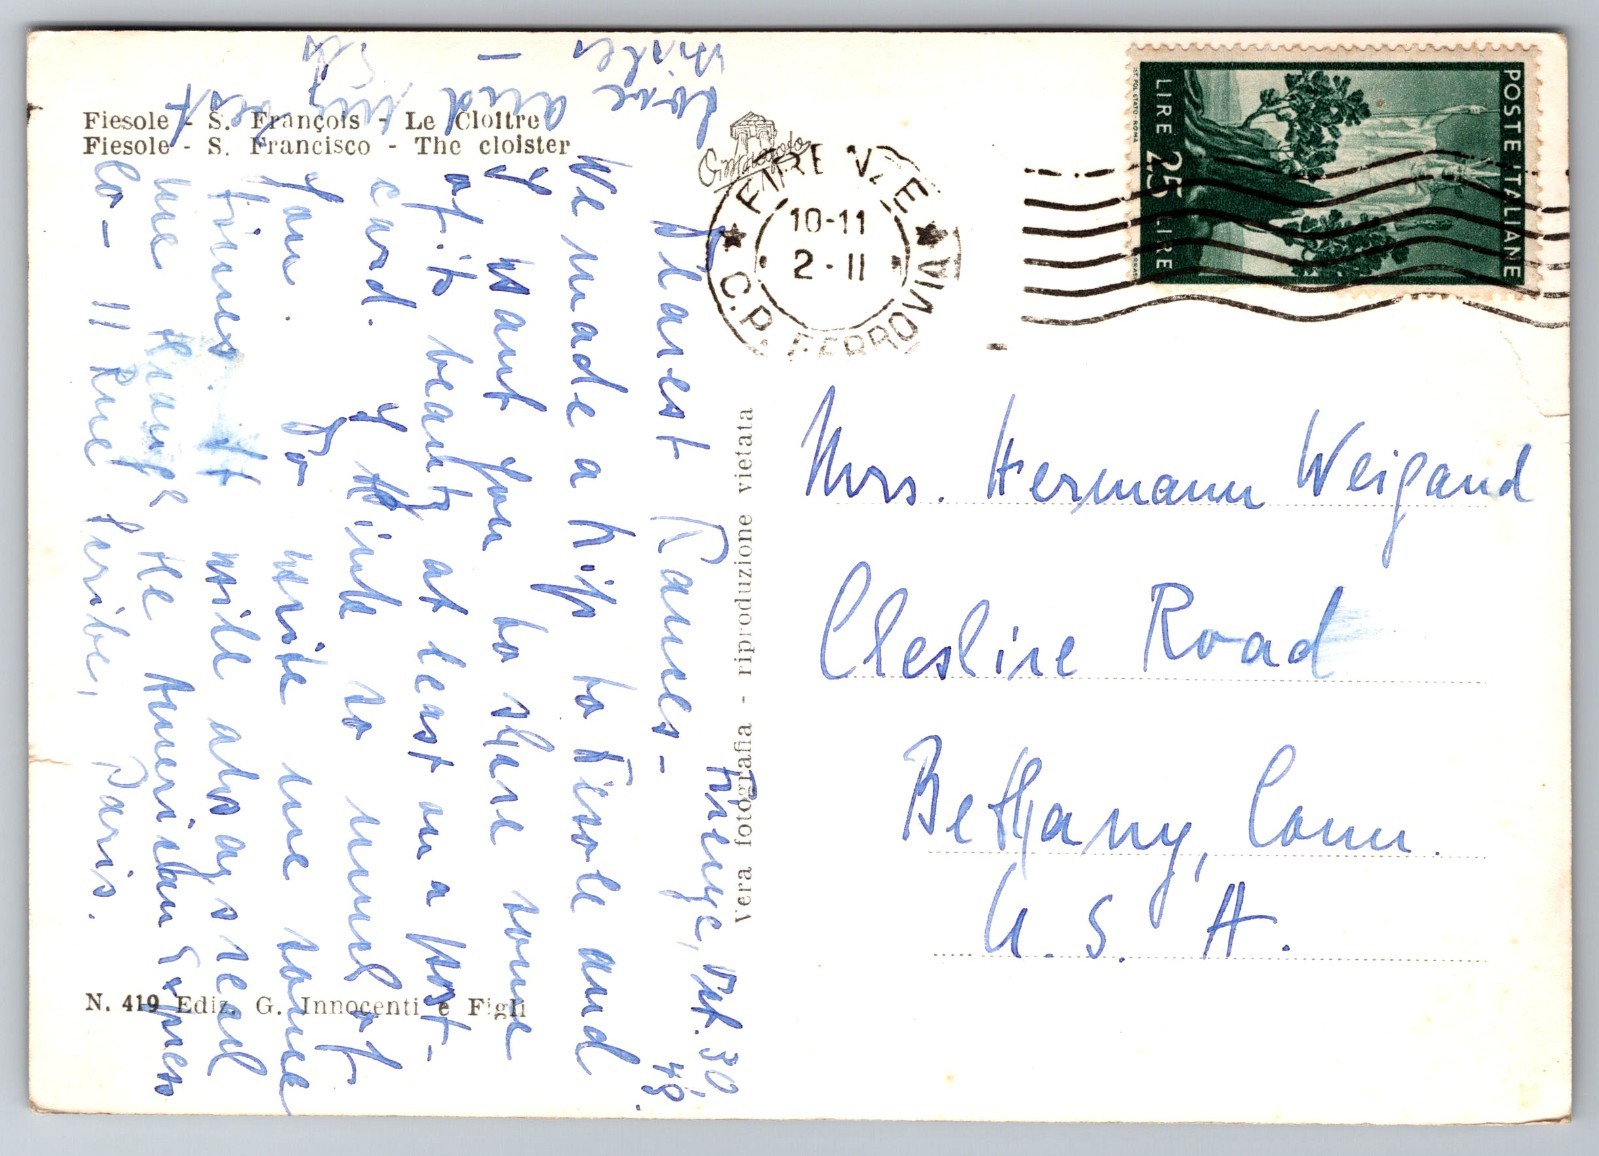 Fiesole - S. François - Le Cloître
Fiesole - S. Francisco - The cloister
N. 419 Ediz. G. Innocenti e Figli
Vera fotografia - riproduzione vietata
POSTE ITALIANE
LIRE 25 LIRE
FIRENZE
10-11
2-II
C.P. FERROVIA
Mrs. Hermann Weigand
Clesline Road
Bethany, Conn.
U. S. A.
Firenze, Okt. 30,
48.
Frances -
We made a trip to Fiesole and
I want you to share some
of its beauty at least on a post-
card. I think so much of
you. Do write me some
times. It will always reach
me through the American Express
Co - 11 Rue Scribe, Paris.
Love and my best
wishes -